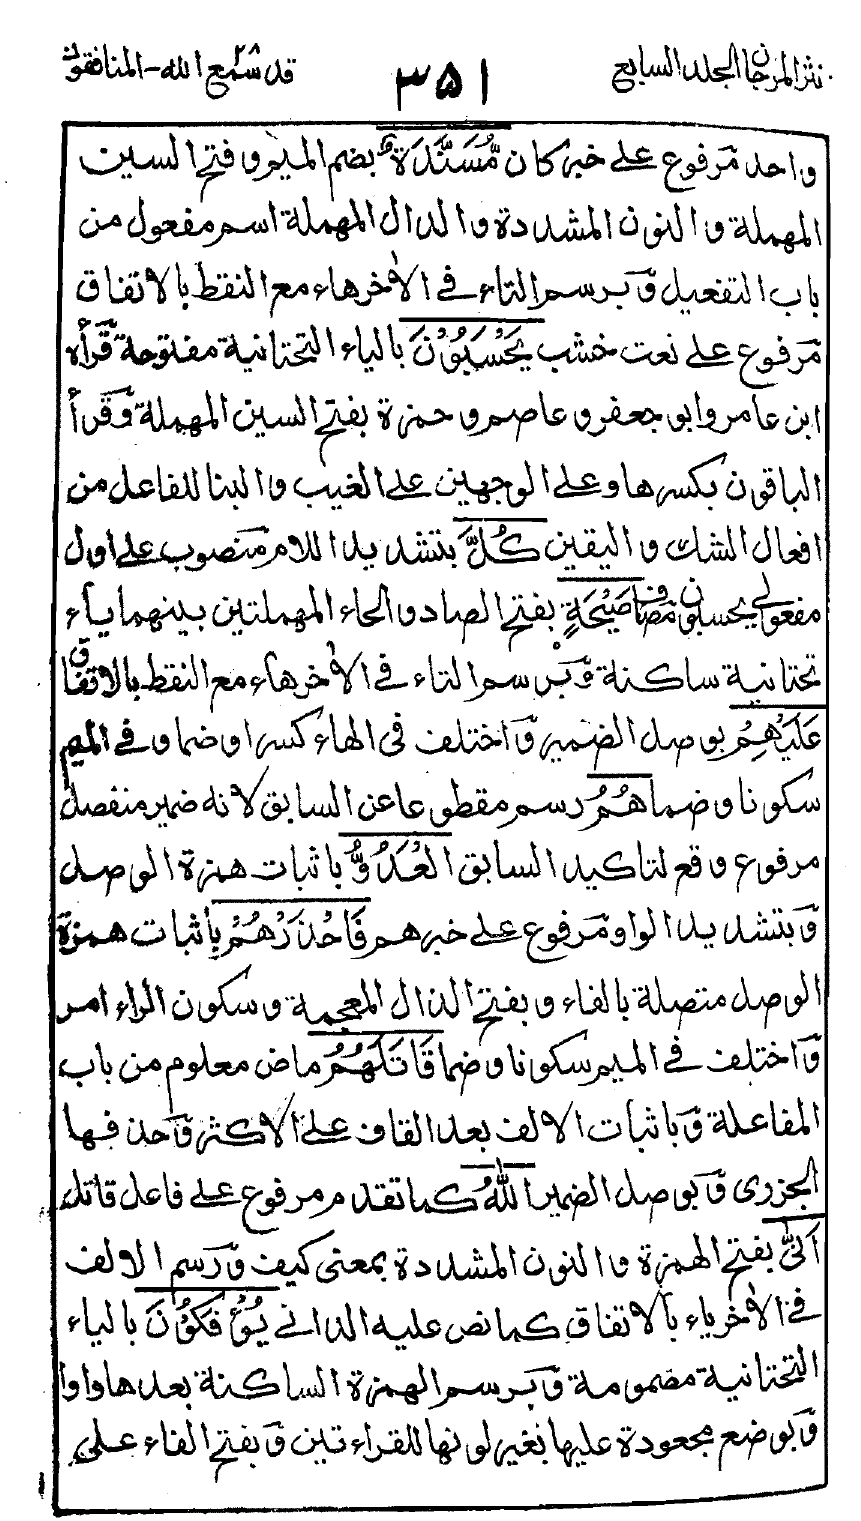 نثر المرجان المجلد السابع
٣٥١
قد سمع الله ٢٨ - المنافقون
واحد مرفوع على خبر كان مُّسَنَّدَةٌ بضم الميم و فتح السين
المهملة و النون المشددة و الدال المهملة اسم مفعول من
باب التفعيل و برسم التاء فى الاٰخر هاء مع النقط بالاتفاق
مرفوع على نعت خشب يَحْسَبُوْنَ بالياء التحتانية مفتوحة قرأه
ابن عامر و ابو جعفر و عاصم و حمزة بفتح السين المهملة و قرأ
الباقون بكسرها و على الوجهين على الغيب و البنا للفاعل من
افعال الشك و اليقين كُلَّ بتشديد اللام منصوب على اول
مفعولي يحسبون مضاف صَيْحَةٍ بفتح الصاد و الحاء المهملتين بينهما ياء
تحتانية ساكنة و برسم التاء فى الاٰخر هاء مع النقط بالاتفاق
عَلَيْهِمْ بوصل الضمير و اختلف فى الهاء كسرا و ضما و فى الميم
سكونا و ضما هُمُ رسم مقطوعا عن السابق لانه ضمير منفصل
مرفوع وقع لتاكيد السابق الْعَدُوُّ باثبات همزة الوصل
و بتشديد الواو مرفوع على خبر هم فَاحْذَرْهُمْ باثبات همزة
الوصل متصلة بالفاء و بفتح الذال المعجمة و سكون الراء امر
و اختلف فى الميم سكونا و ضما قَاتَلَهُمُ ماض معلوم من باب
المفاعلة و باثبات الالف بعد القاف على الاكثر و حذفها
الجزرى و بوصل الضمير اللّٰهُ كما تقدم مرفوع على فاعل قاتل
اَنّٰى بفتح الهمزة و النون المشددة بمعنى كيف و رسم الالف
فى الاٰخر ياء بالاتفاق كما نص عليه الدانى يُؤْفَكُوْنَ بالياء
التحتانية مضمومة و برسم الهمزة الساكنة بعدها واوا
و بوضع مجعودة عليها بغير لونها للقراءتين و بفتح الفاء على